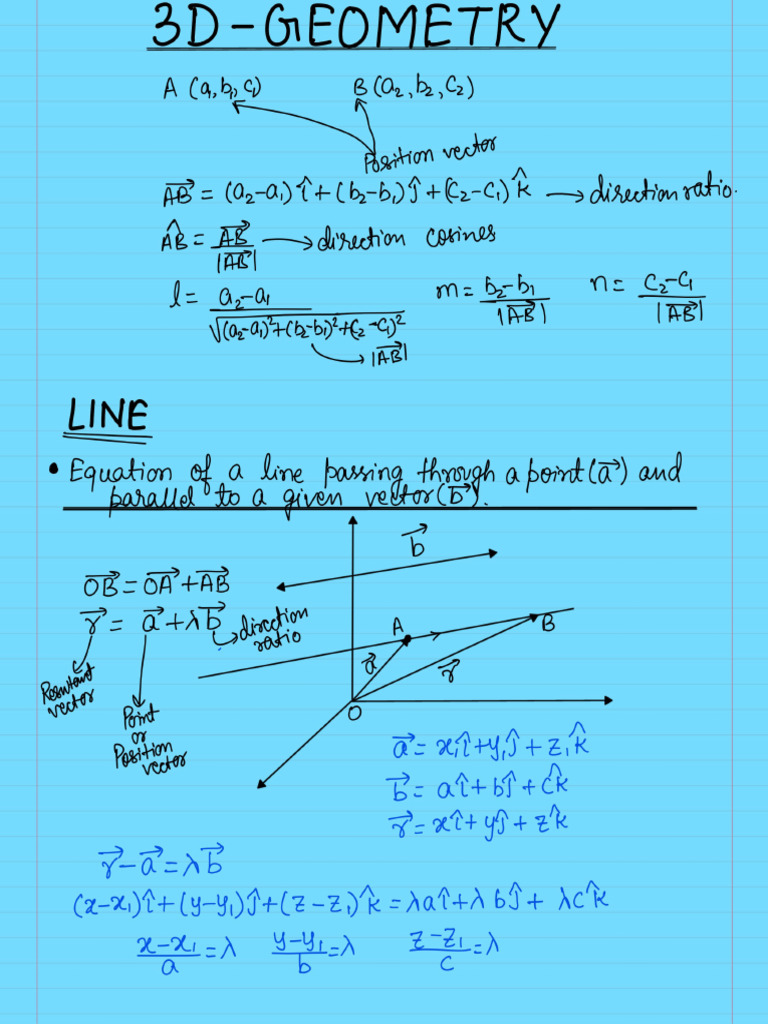 3D-GEOMETRY
A (a₁,b₁,c₁) B(a₂,b₂,c₂)
Position vector
AB⃗ = (a₂-a₁)î+(b₂-b₁)ĵ+(c₂-c₁)k̂ → direction ratio.
AB̂ = AB⃗/|AB⃗| → direction cosines
l= (a₂-a₁)/√(a₂-a₁)²+(b₂-b₁)²+(c₂-c₁)² m= (b₂-b₁)/|AB⃗| n= (c₂-c₁)/|AB⃗|
→ |AB⃗|
LINE
• Equation of a line passing through a point(a⃗) and
parallel to a given vector(b⃗).
b⃗
OB⃗ = OA⃗ + AB⃗
r⃗ = a⃗+λb⃗
direction
ratio
Resultant
vector
Point
or
Position
vector
A
B
a⃗
r⃗
O
a⃗ = x₁î+y₁ĵ+z₁k̂
b⃗ = aî+bĵ+ck̂
r⃗ = xî+yĵ+zk̂
r⃗-a⃗=λb⃗
(x-x₁)î+(y-y₁)ĵ+(z-z₁)k̂ =λaî+λbĵ+λck̂
(x-x₁)/a=λ (y-y₁)/b=λ (z-z₁)/c=λ